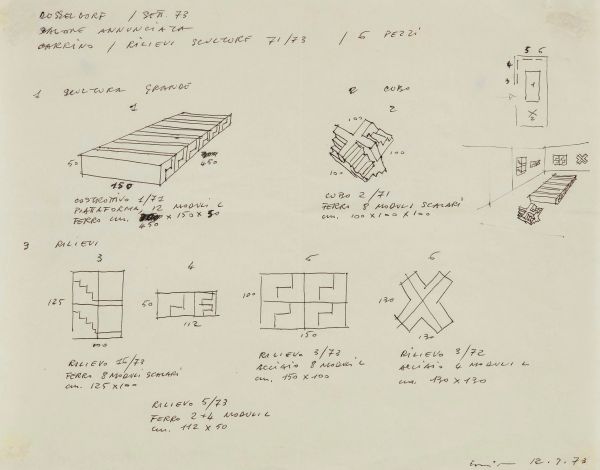 DÜSSELDORF / SETT. 73
SALONE ANNUNCIATA
CARRINO / RILIEVI SCULTURE 71/73 / 6 PEZZI
1 SCULTURA GRANDE
1
50
150
450
COSTRUTTIVO 1/71
PIATTAFORMA, 12 MODULI L
FERRO cm. 450 x 150 x 50
2 CUBO
2
100
100
100
CUBO 2/71
FERRO 8 MODULI SCALARI
cm. 100 x 100 x 100
5 6
4
3
1
2
3 RILIEVI
3
125
100
RILIEVO 15/73
FERRO 8 MODULI SCALARI
cm. 125 x 100
4
50
112
RILIEVO 5/73
FERRO 2+4 MODULI L
cm. 112 x 50
5
100
150
RILIEVO 3/73
ACCIAIO 8 MODULI L
cm. 150 x 100
6
130
130
RILIEVO 3/72
ACCIAIO 4 MODULI L
cm. 130 x 130
12.9.73